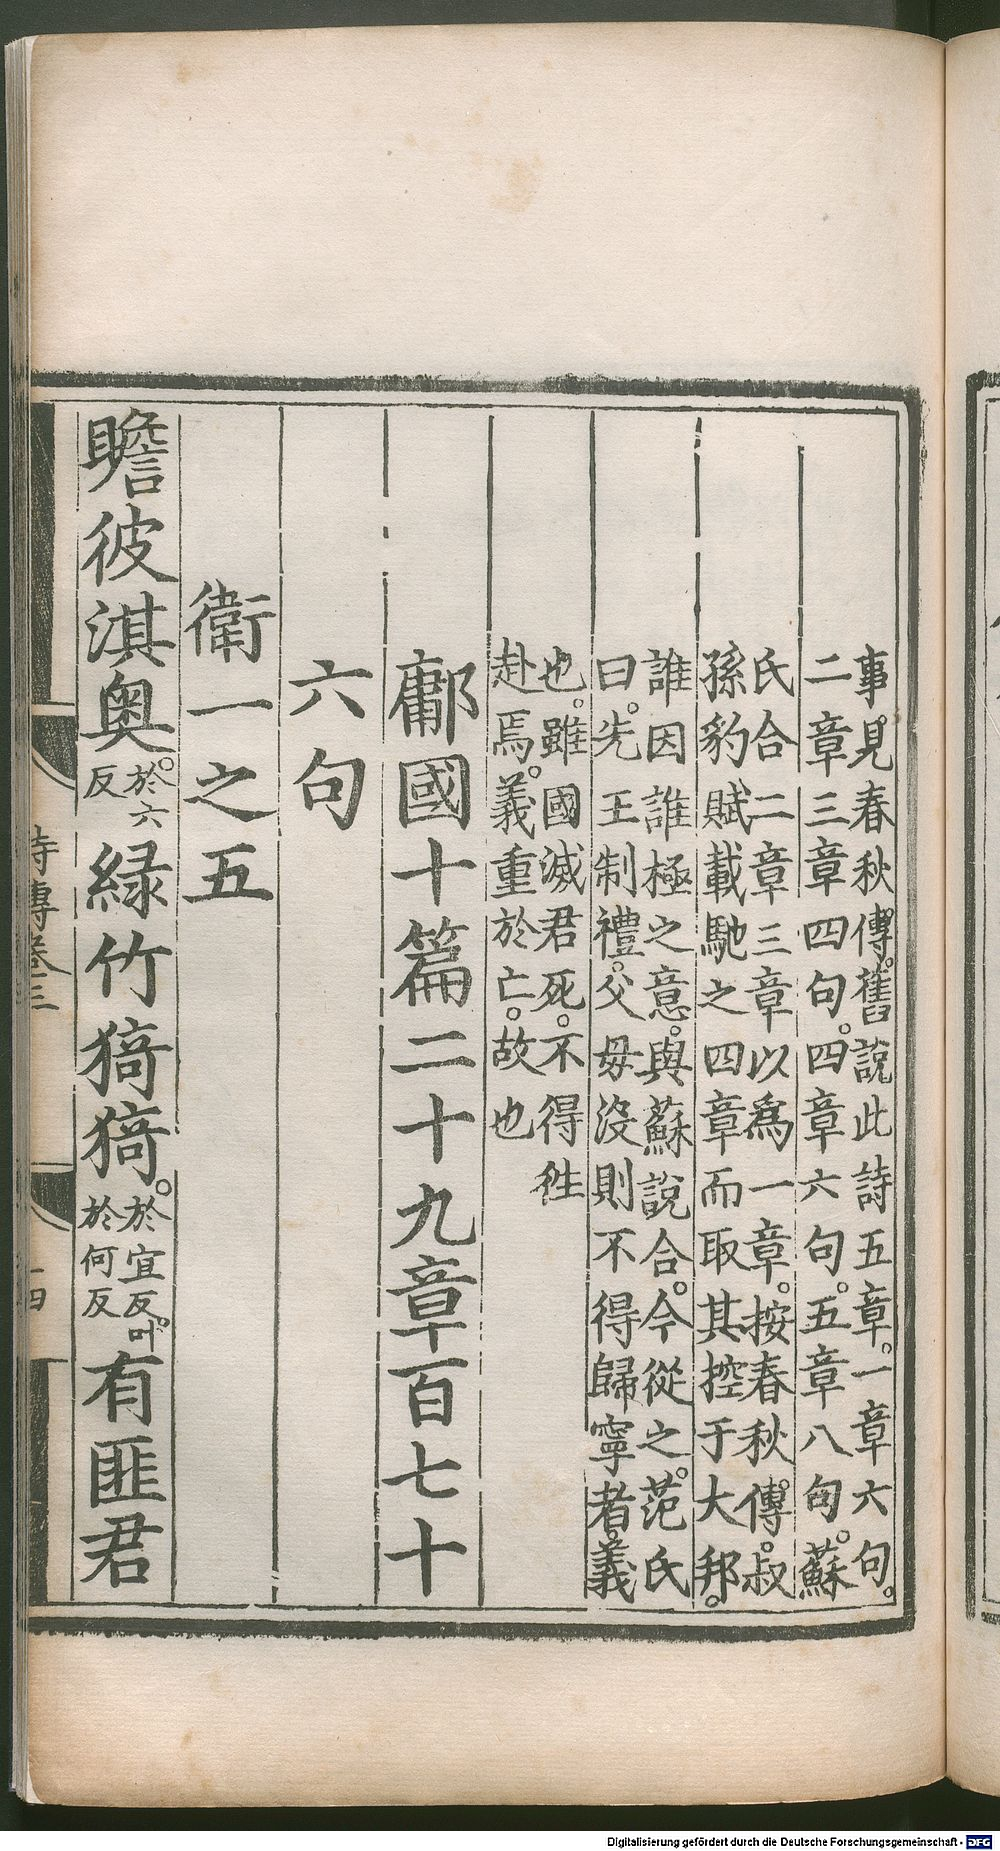 事。見春秋傳。舊說此詩五章。一章六句。
二章三章四句。四章六句。五章八句。蘇
氏合二章三章以爲一章。按春秋傳。叔
孫豹賦載馳之四章而取其控于大邦。
誰因誰極之意。與蘇說合。今從之。范氏
曰。先王制禮。父母沒則不得歸寧者。義
也。雖國滅君死。不得徃
赴焉。義重於亡。故也
鄘國十篇二十九章百七十
六句
衛一之五
瞻彼淇奥。於六反綠竹猗猗。於宜反。叶於何反有匪君
詩傳卷三
十四
Digitalisierung gefördert durch die Deutsche Forschungsgemeinschaft - DFG